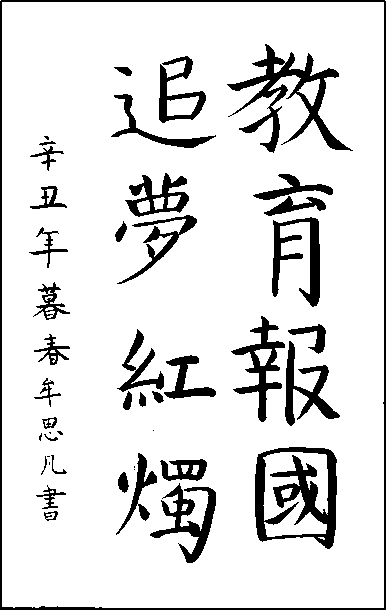 教育報國
追夢紅燭
辛丑年暮春牟思凡書